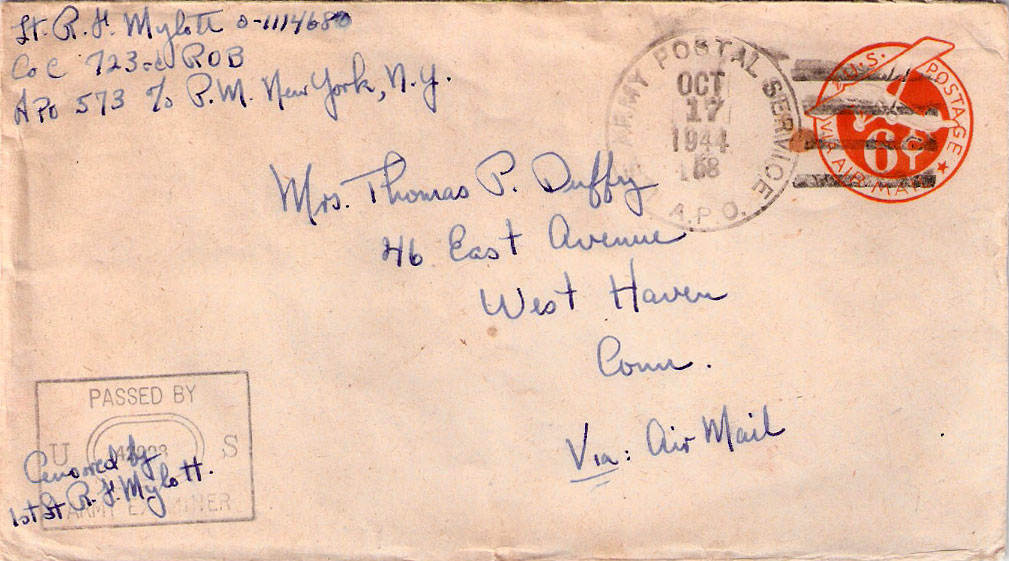 Lt. R. F. Mylott O-1114680
Co C 723rd ROB
APO 573 c/o P.M. New York, N.Y.
ARMY POSTAL SERVICE
OCT
17
1944
A.P.O.
U.S. POSTAGE
6¢
VIA AIR MAIL
Mrs. Thomas P. Duffy
46 East Avenue
West Haven
Conn.
Via: Air Mail
PASSED BY
U S
ARMY EXAMINER
Censored by
1st Lt R. F. Mylott.